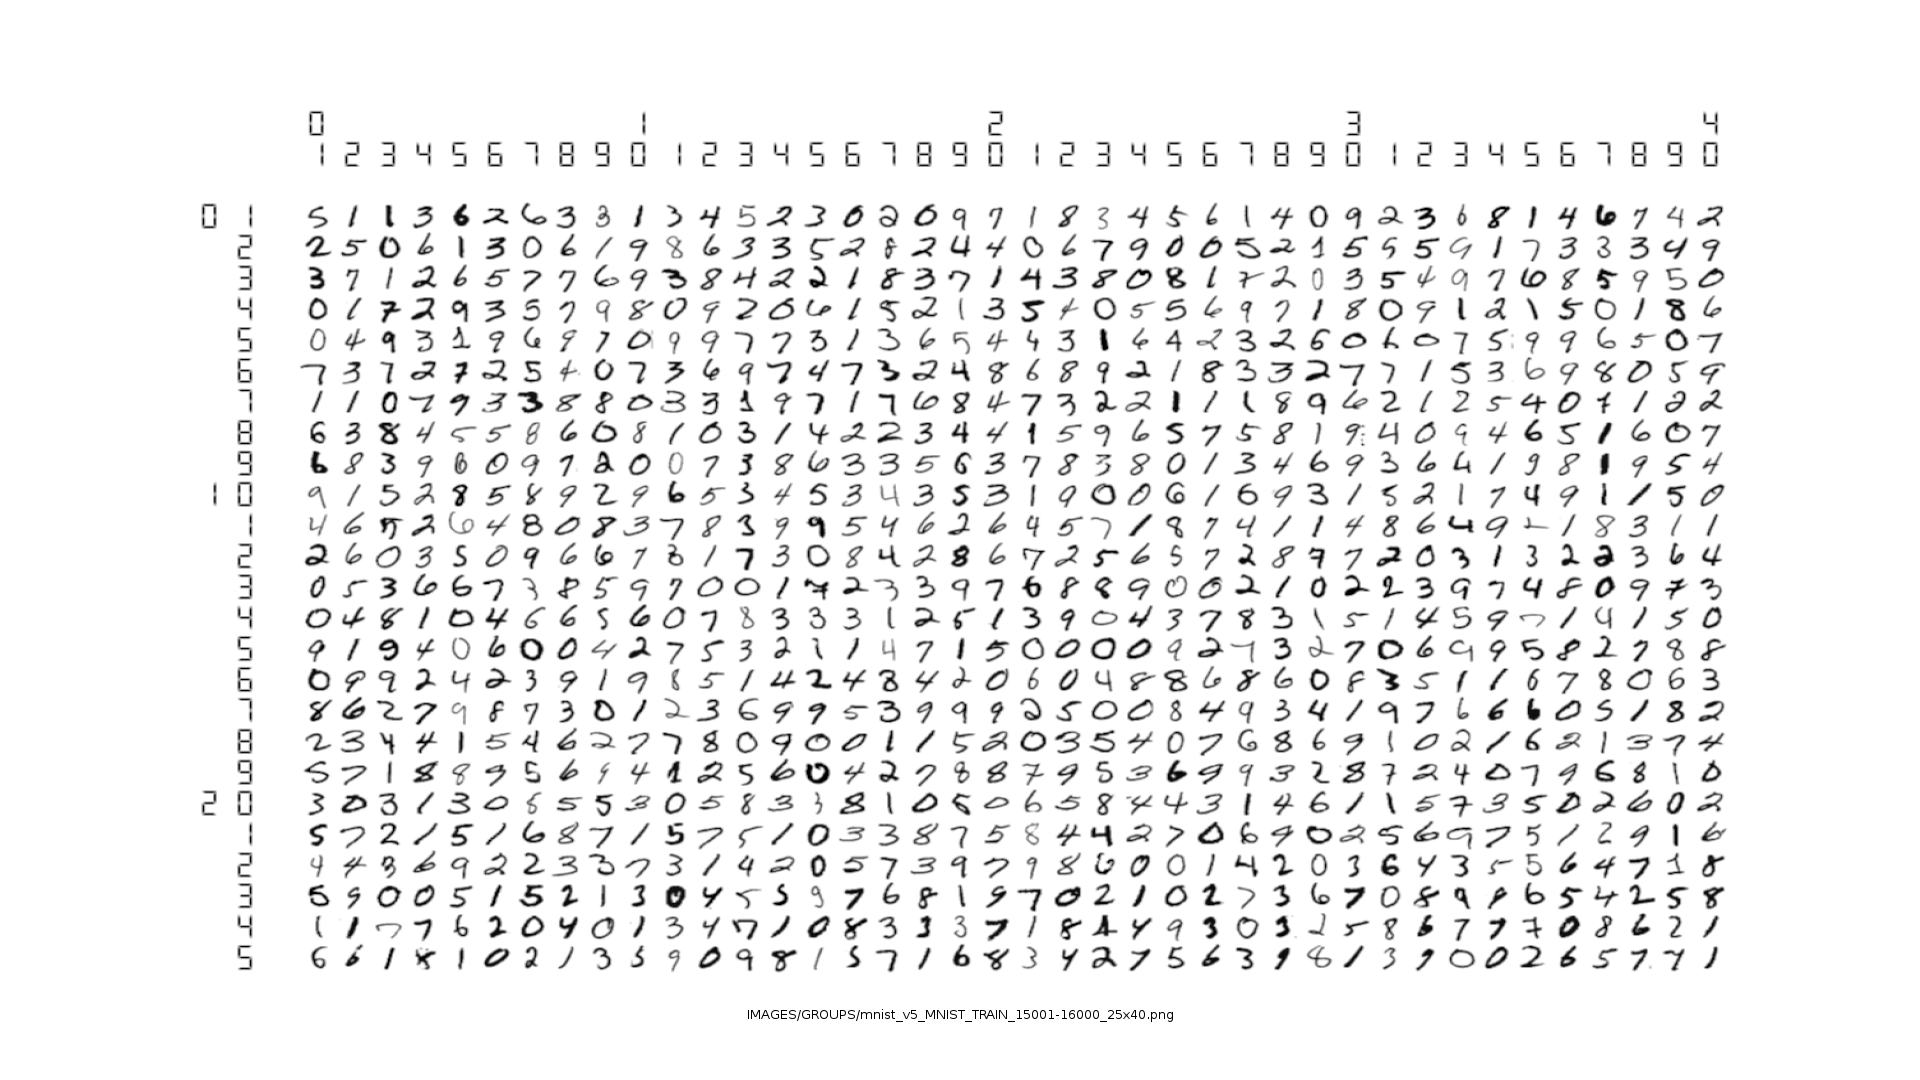 0 1 2 3 4
1 2 3 4 5 6 7 8 9 0 1 2 3 4 5 6 7 8 9 0 1 2 3 4 5 6 7 8 9 0 1 2 3 4 5 6 7 8 9 0
0 1 5 1 1 3 6 2 6 3 3 1 3 4 5 2 3 0 2 0 9 7 1 8 3 4 5 6 1 4 0 9 2 3 6 8 1 4 6 7 4 2
2 2 5 0 6 1 3 0 6 1 9 8 6 3 3 5 2 8 2 4 4 0 6 7 9 0 0 5 2 1 5 9 5 9 1 7 3 3 3 4 9
3 3 7 1 2 6 5 7 7 6 9 3 8 4 2 2 1 8 3 7 1 4 3 8 0 8 1 7 2 0 3 5 4 9 7 6 8 5 9 5 0
4 0 1 7 2 9 3 5 7 9 8 0 9 2 0 6 1 5 2 1 3 5 4 0 5 5 6 9 7 1 8 0 9 1 2 1 5 0 1 8 6
5 0 4 9 3 1 9 6 9 7 0 9 9 7 7 3 1 3 6 5 4 4 3 1 6 4 2 3 2 6 0 6 0 7 5 9 9 6 5 0 7
6 7 3 7 2 7 2 5 4 0 7 3 6 9 7 4 7 3 2 4 8 6 8 9 2 1 8 3 3 2 7 7 1 5 3 6 9 8 0 5 9
7 1 1 0 7 9 3 3 8 8 0 3 3 1 9 7 1 7 6 8 4 7 3 2 2 1 1 1 8 9 6 2 1 2 5 4 0 7 1 2 2
8 6 3 8 4 5 5 8 6 0 8 1 0 3 1 4 2 2 3 4 4 1 5 9 6 5 7 5 8 1 9 4 0 9 4 6 5 1 6 0 7
9 6 8 3 9 6 0 9 7 2 0 0 7 3 8 6 3 3 5 6 3 7 8 3 8 0 1 3 4 6 9 3 6 4 1 9 8 1 9 5 4
1 0 9 1 5 2 8 5 8 9 2 9 6 5 3 4 5 3 4 3 5 3 1 9 0 0 6 1 6 9 3 1 5 2 1 7 4 9 1 1 5 0
1 4 6 5 2 6 4 8 0 8 3 7 8 3 9 9 5 4 6 2 6 4 5 7 1 8 7 4 1 1 4 8 6 4 9 2 1 8 3 1 1
2 2 6 0 3 5 0 9 6 6 7 3 1 7 3 0 8 4 2 8 6 7 2 5 6 5 7 2 8 9 7 2 0 3 1 3 2 2 3 6 4
3 0 5 3 6 6 7 3 8 5 9 7 0 0 1 7 2 3 3 9 7 6 8 8 9 0 0 2 1 0 2 2 3 9 7 4 8 0 9 7 3
4 0 4 8 1 0 4 6 6 5 6 0 7 8 3 3 3 1 2 5 1 3 9 0 4 3 7 8 3 1 5 1 4 5 9 7 1 4 1 5 0
5 9 1 9 4 0 6 0 0 4 2 7 5 3 2 1 1 4 7 1 5 0 0 0 0 9 2 7 3 2 7 0 6 9 9 5 8 2 7 8 8
6 0 9 9 2 4 2 3 9 1 9 8 5 1 4 2 4 8 4 2 0 6 0 4 8 8 6 8 6 0 8 3 5 1 1 6 7 8 0 6 3
7 8 6 2 7 9 8 7 3 0 1 2 3 6 9 9 5 3 9 9 9 2 5 0 0 8 4 9 3 4 1 9 7 6 6 6 0 5 1 8 2
8 2 3 4 4 1 5 4 6 2 7 7 8 0 9 0 0 1 1 5 2 0 3 5 4 0 7 6 8 6 9 1 0 2 1 6 2 1 3 7 4
9 5 7 1 8 8 9 5 6 9 4 1 2 5 6 0 4 2 7 8 8 7 9 5 3 6 9 9 3 2 8 7 2 4 0 7 9 6 8 1 0
2 0 3 0 3 1 3 0 6 5 5 3 0 5 8 3 3 8 1 0 5 0 6 5 8 4 4 3 1 4 6 1 1 5 7 3 5 0 2 6 0 2
1 5 7 2 1 5 1 6 8 7 1 5 7 5 1 0 3 3 8 7 5 8 4 4 2 7 0 6 9 0 2 5 6 9 7 5 1 2 9 1 6
2 4 4 3 6 9 2 2 3 3 7 3 1 4 2 0 5 7 3 9 7 9 8 6 0 0 1 4 2 0 3 6 4 3 5 5 6 4 7 1 8
3 5 9 0 0 5 1 5 2 1 3 0 4 5 5 9 7 6 8 1 9 7 0 2 1 0 2 7 3 6 7 0 8 9 9 6 5 4 2 5 8
4 1 1 7 7 6 2 0 4 0 1 3 4 7 1 0 8 3 3 3 7 1 8 4 4 9 3 0 3 2 5 8 6 7 7 7 0 8 6 2 1
5 6 6 1 8 1 0 2 1 3 5 9 0 9 8 1 5 7 1 6 8 3 4 2 7 5 6 3 9 8 1 3 9 0 0 2 6 5 7 7 1
IMAGES/GROUPS/mnist_v5_MNIST_TRAIN_15001-16000_25x40.png